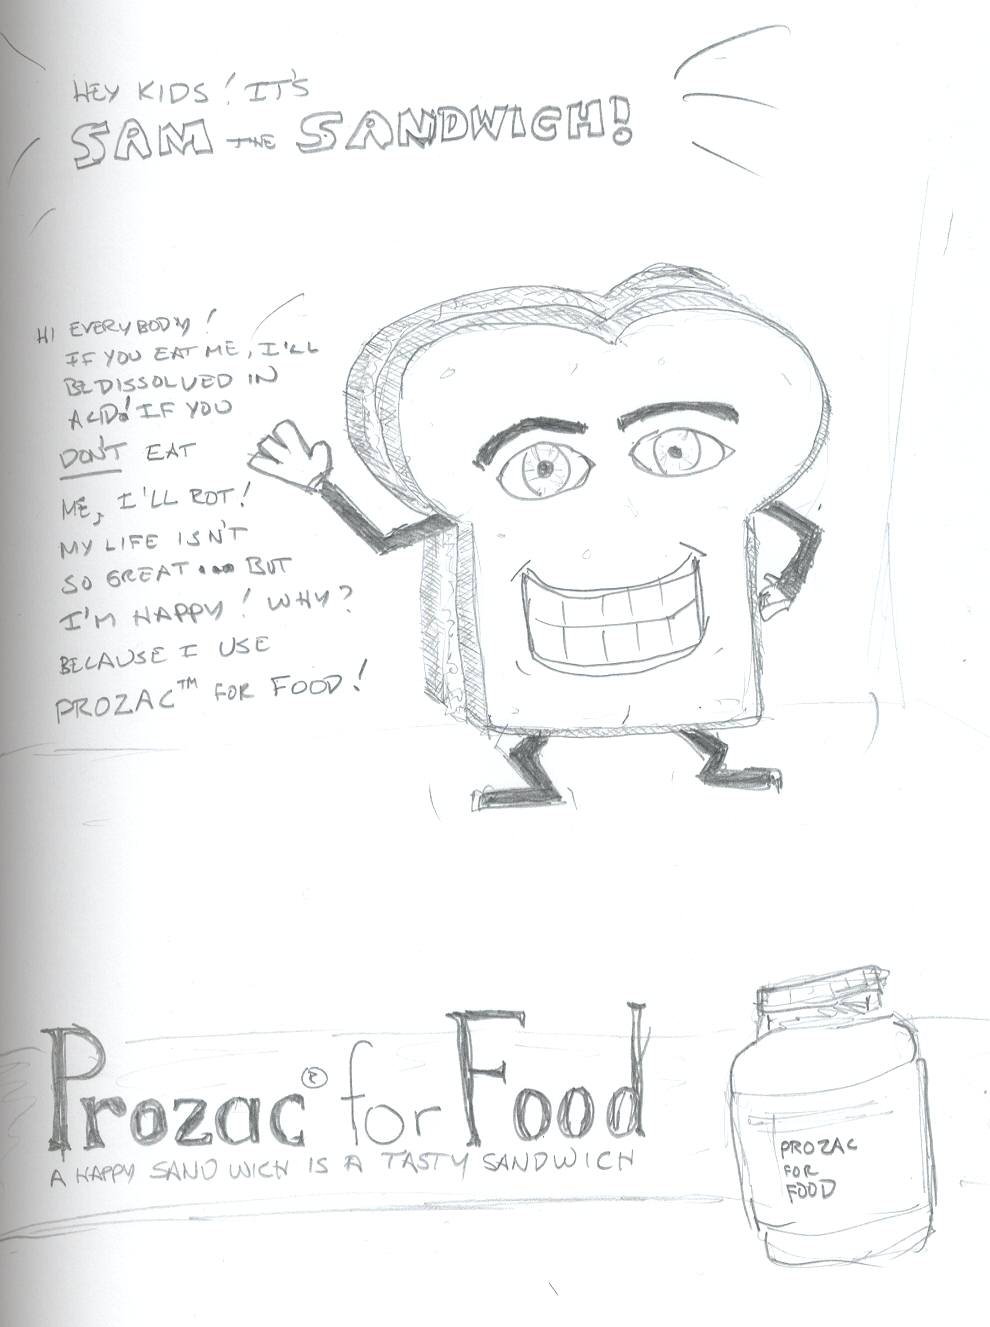 HEY KIDS! IT'S
SAM THE SANDWICH!
HI EVERYBODY!
IF YOU EAT ME, I'LL
BE DISSOLVED IN
ACID! IF YOU
DON'T EAT
ME, I'LL ROT!
MY LIFE ISN'T
SO GREAT... BUT
I'M HAPPY! WHY?
BECAUSE I USE
PROZAC™ FOR FOOD!
Prozac® for Food
A HAPPY SANDWICH IS A TASTY SANDWICH
PROZAC
FOR
FOOD